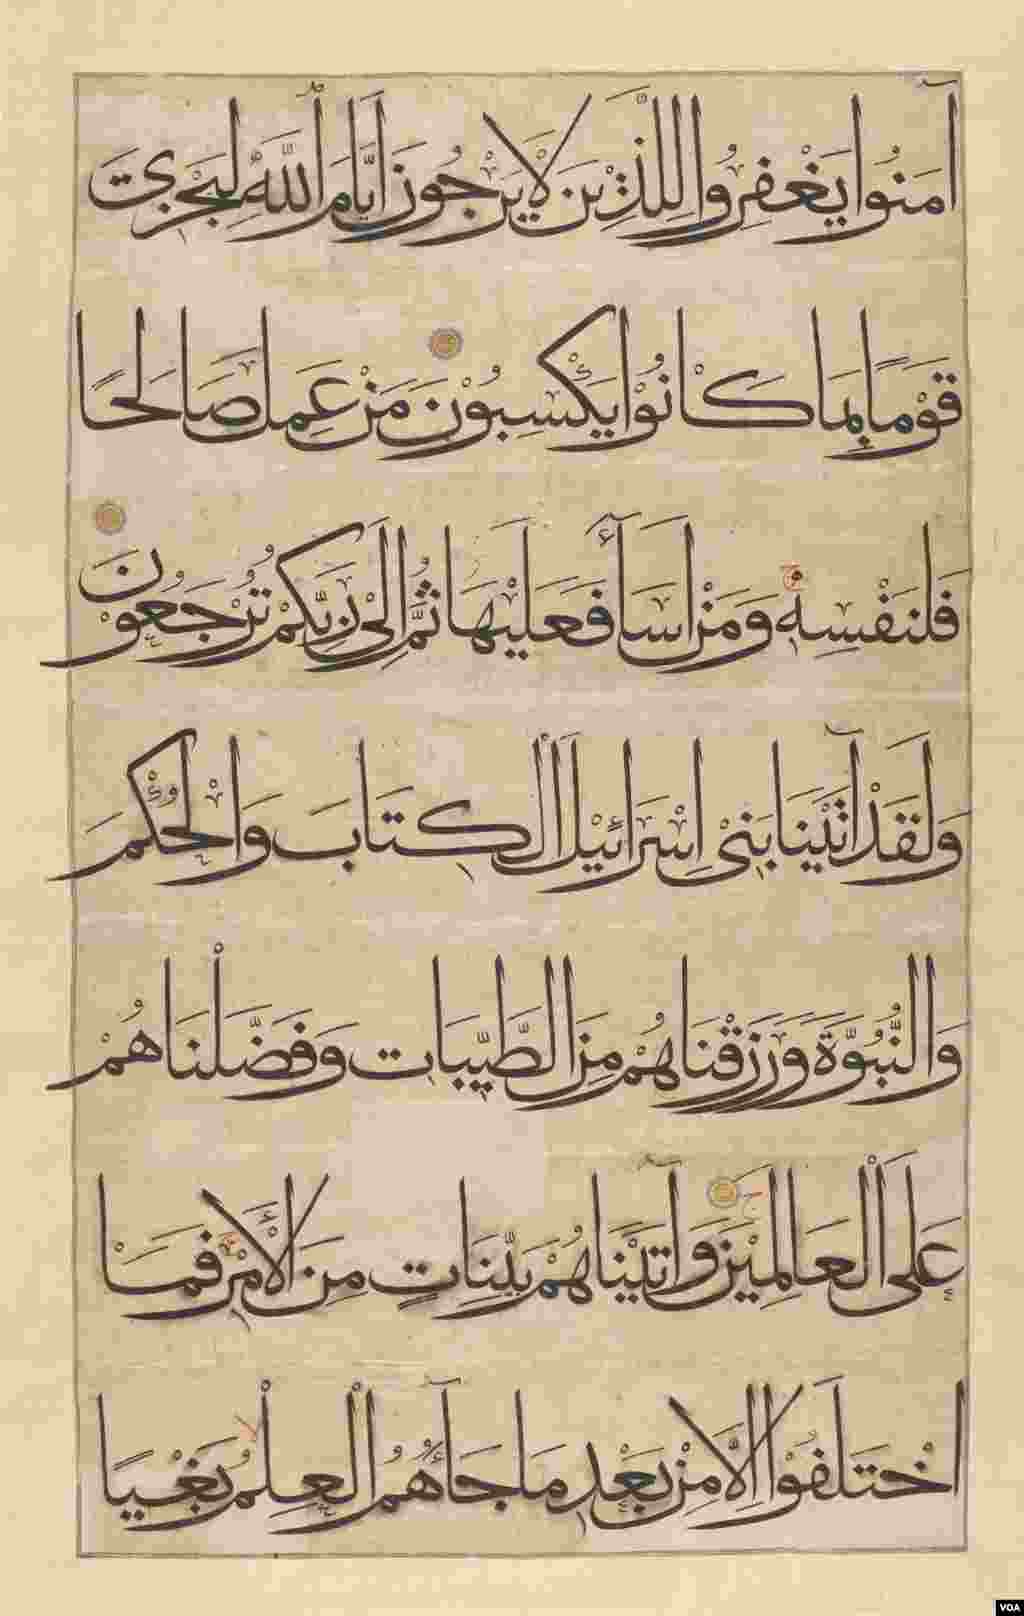 آمَنُوا يَغْفِرُوا لِلَّذِيْنَ لَا يَرْجُونَ أَيَّامَ اللَّهِ لِيَجْزِيَ
قَوْمًا بِمَا كَانُوْا يَكْسِبُوْنَ مَنْ عَمِلَ صَالِحًا
فَلِنَفْسِهِ وَمَنْ أَسَآءَ فَعَلَيْهَا ثُمَّ إِلَىٰ رَبِّكُمْ تُرْجَعُوْنَ
وَلَقَدْ آتَيْنَا بَنِيْ إِسْرَائِيْلَ الْكِتَابَ وَالْحُكْمَ
وَالنُّبُوَّةَ وَرَزَقْنَاهُمْ مِنَ الطَّيِّبَاتِ وَفَضَّلْنَاهُمْ
عَلَى الْعَالَمِيْنَ وَآتَيْنَاهُمْ بَيِّنَاتٍ مِنَ الْأَمْرِ فَمَا
اخْتَلَفُوْا إِلَّا مِنْ بَعْدِ مَا جَآءَهُمُ الْعِلْمُ بَغْيًا
VOA